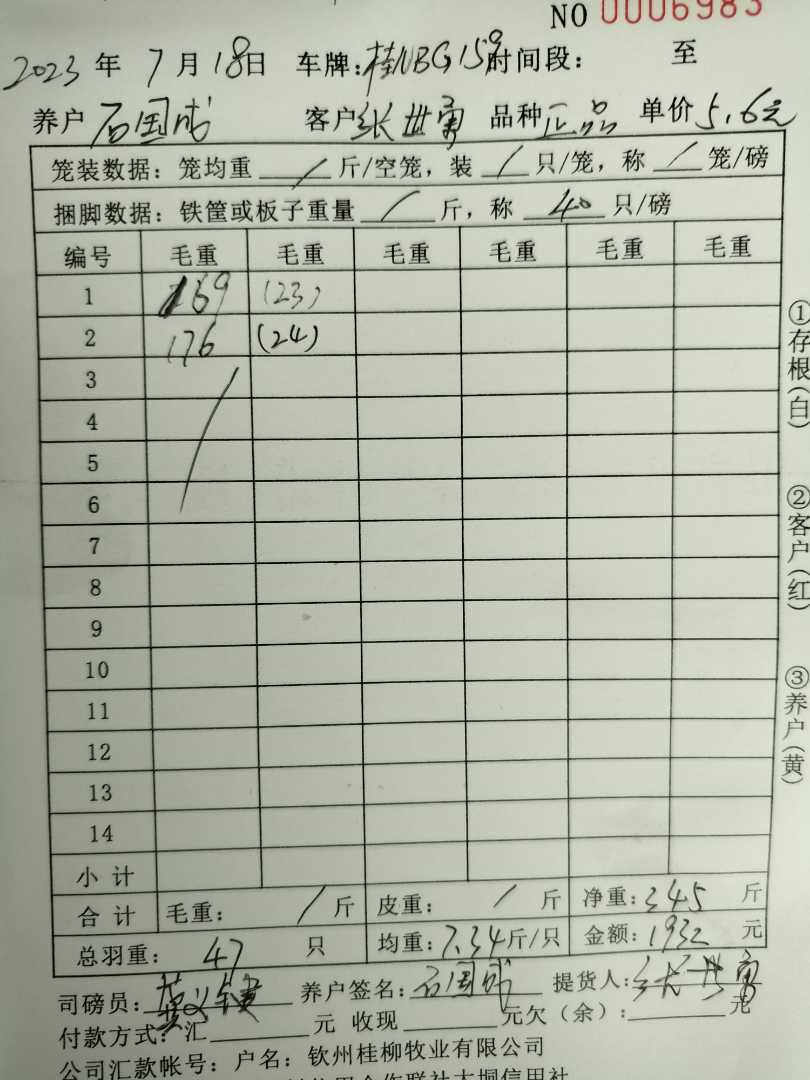 NO 0006983
2023 年 7 月 18 日 车牌:桂NBG159 时间段: 至
养户 石国成 客户 张世勇 品种 正品 单价 5.6元
笼装数据: 笼均重 / 斤/空笼, 装 / 只/笼, 称 / 笼/磅
捆脚数据: 铁筐或板子重量 / 斤, 称 40 只/磅
编号 毛重 毛重 毛重 毛重 毛重 毛重
1 169 (23)
2 176 (24)
3
4
5
6
7
8
9
10
11
12
13
14
小计
合计 毛重: / 斤 皮重: / 斤 净重: 345 斤
总羽重: 47 只 均重: 7.34 斤/只 金额: 1932 元
司磅员: 养户签名: 石国成 提货人: 张世勇
付款方式: 汇 元 收现 元欠(余): 元
公司汇款帐号: 户名: 钦州桂柳牧业有限公司
信用合作联社大垌信用社
①存根(白)
②客户(红)
③养户(黄)